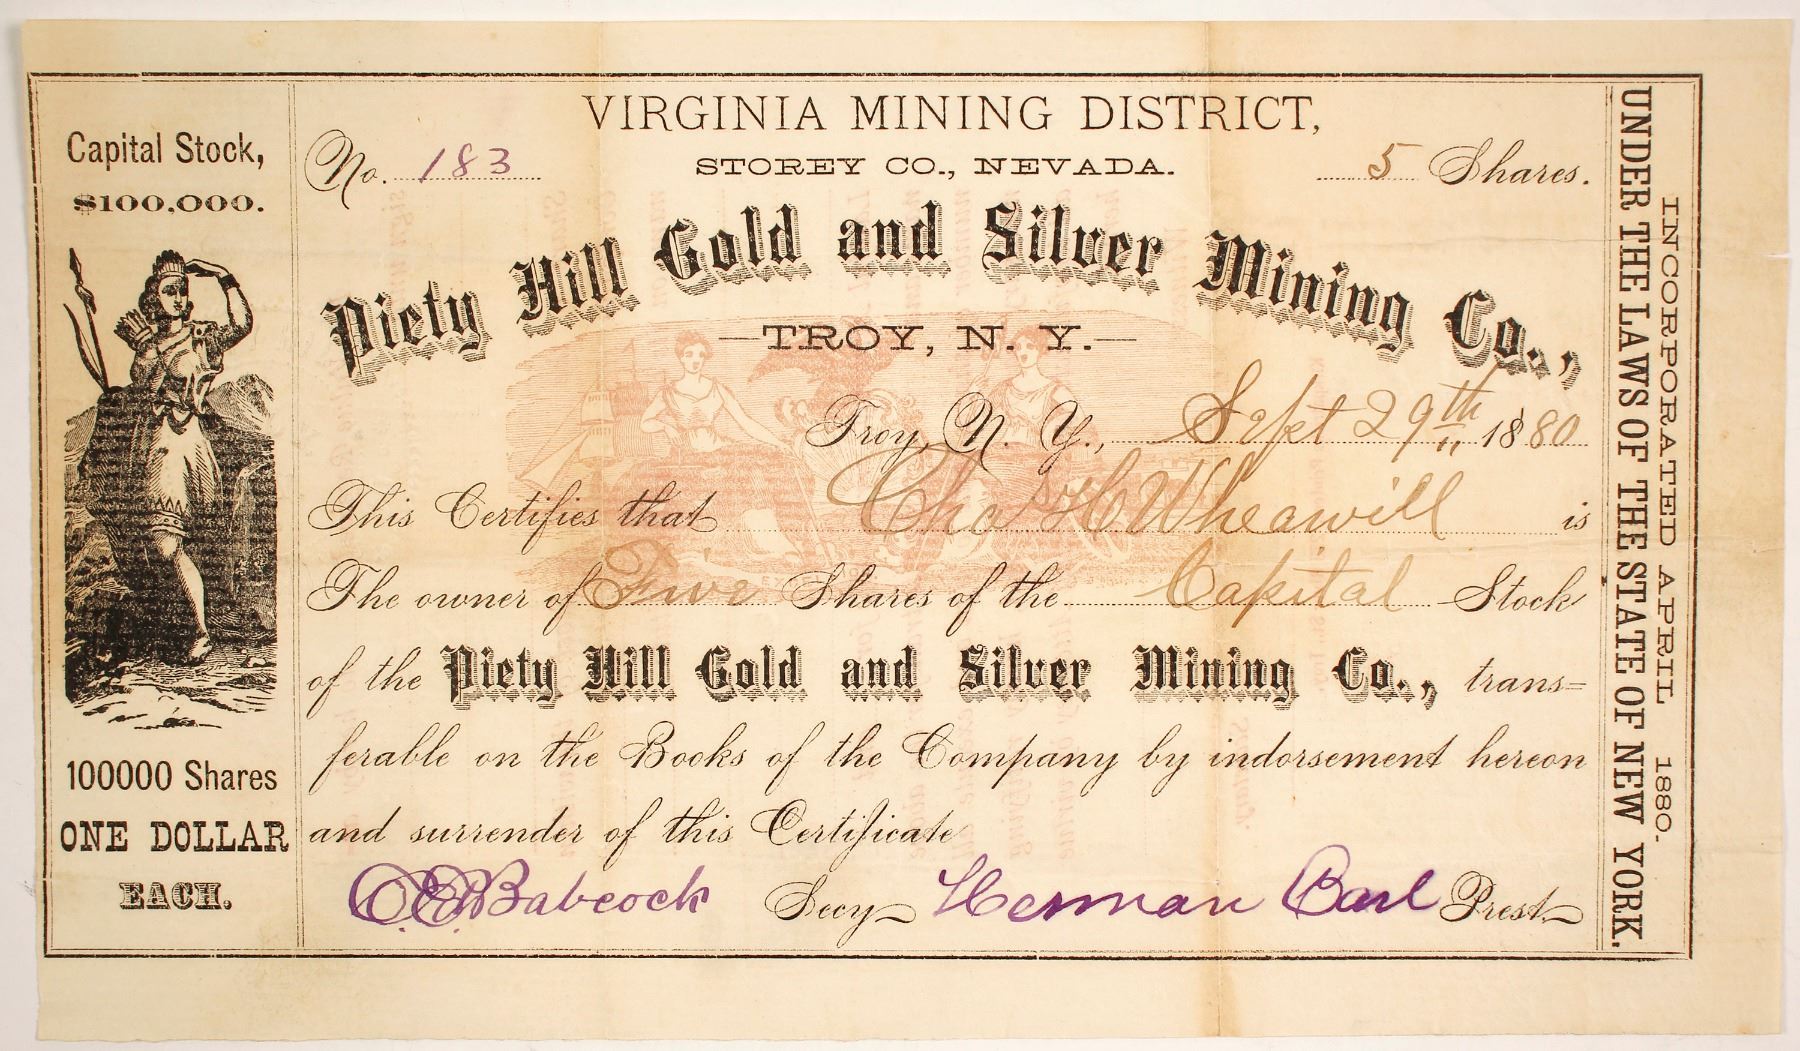 Capital Stock,
$100,000.
100000 Shares
ONE DOLLAR
EACH.
VIRGINIA MINING DISTRICT,
No. 183 STOREY CO., NEVADA. 5 Shares.
Piety Hill Gold and Silver Mining Co.,
TROY, N. Y.
Troy, N. Y., Sept 29th 1880
This Certifies that Chas H Wheawill is
The owner of Five Shares of the Capital Stock
of the Piety Hill Gold and Silver Mining Co., trans=
ferable on the Books of the Company by indorsement hereon
and surrender of this Certificate
Babcock Secy Herman Prest.
INCORPORATED APRIL 1880.
UNDER THE LAWS OF THE STATE OF NEW YORK.